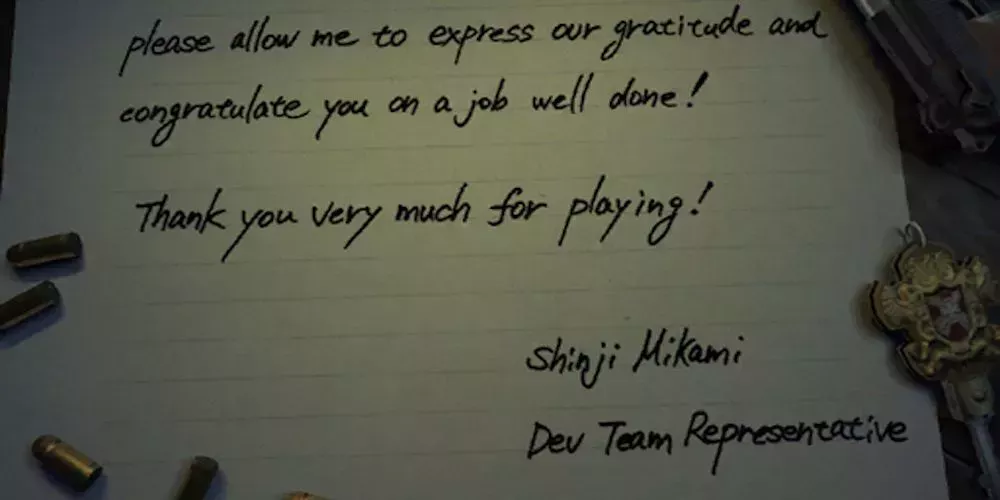 please allow me to express our gratitude and
congratulate you on a job well done!
Thank you very much for playing!
Shinji Mikami
Dev Team Representative